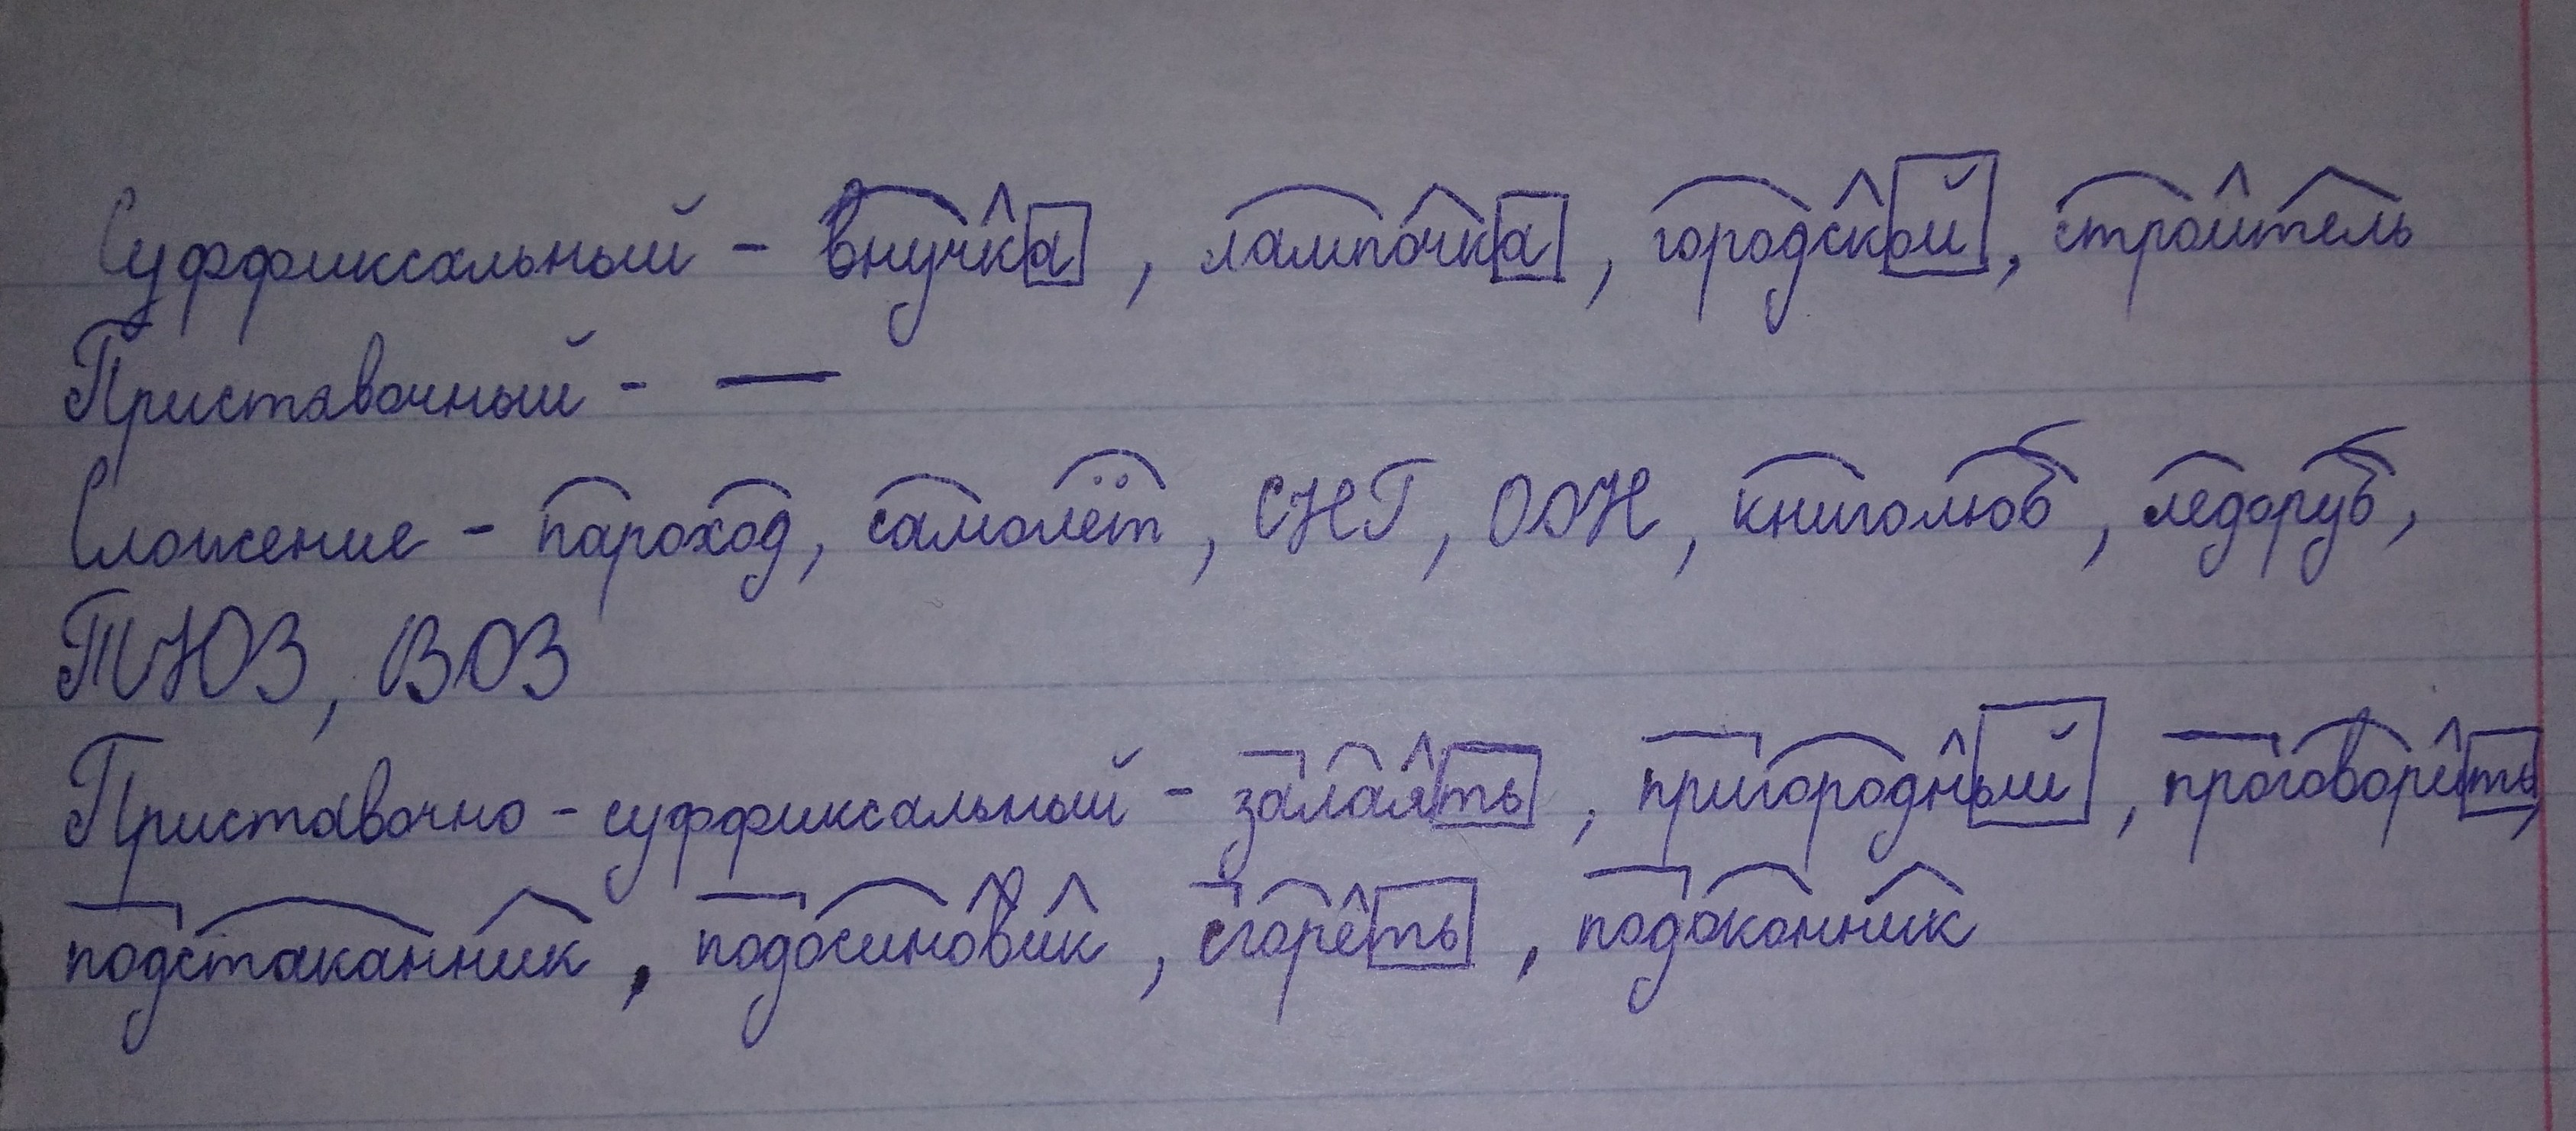 Суффиксальный - внучка, лампочка, городской, строитель
Приставочный - —
Сложение - пароход, самолёт, СНГ, ООН, книголюб, ледоруб,
ТЮЗ, ВОЗ
Приставочно - суффиксальный - залаять, пригородный, проговорить,
подстаканник, подосиновик, сгореть, подоконник